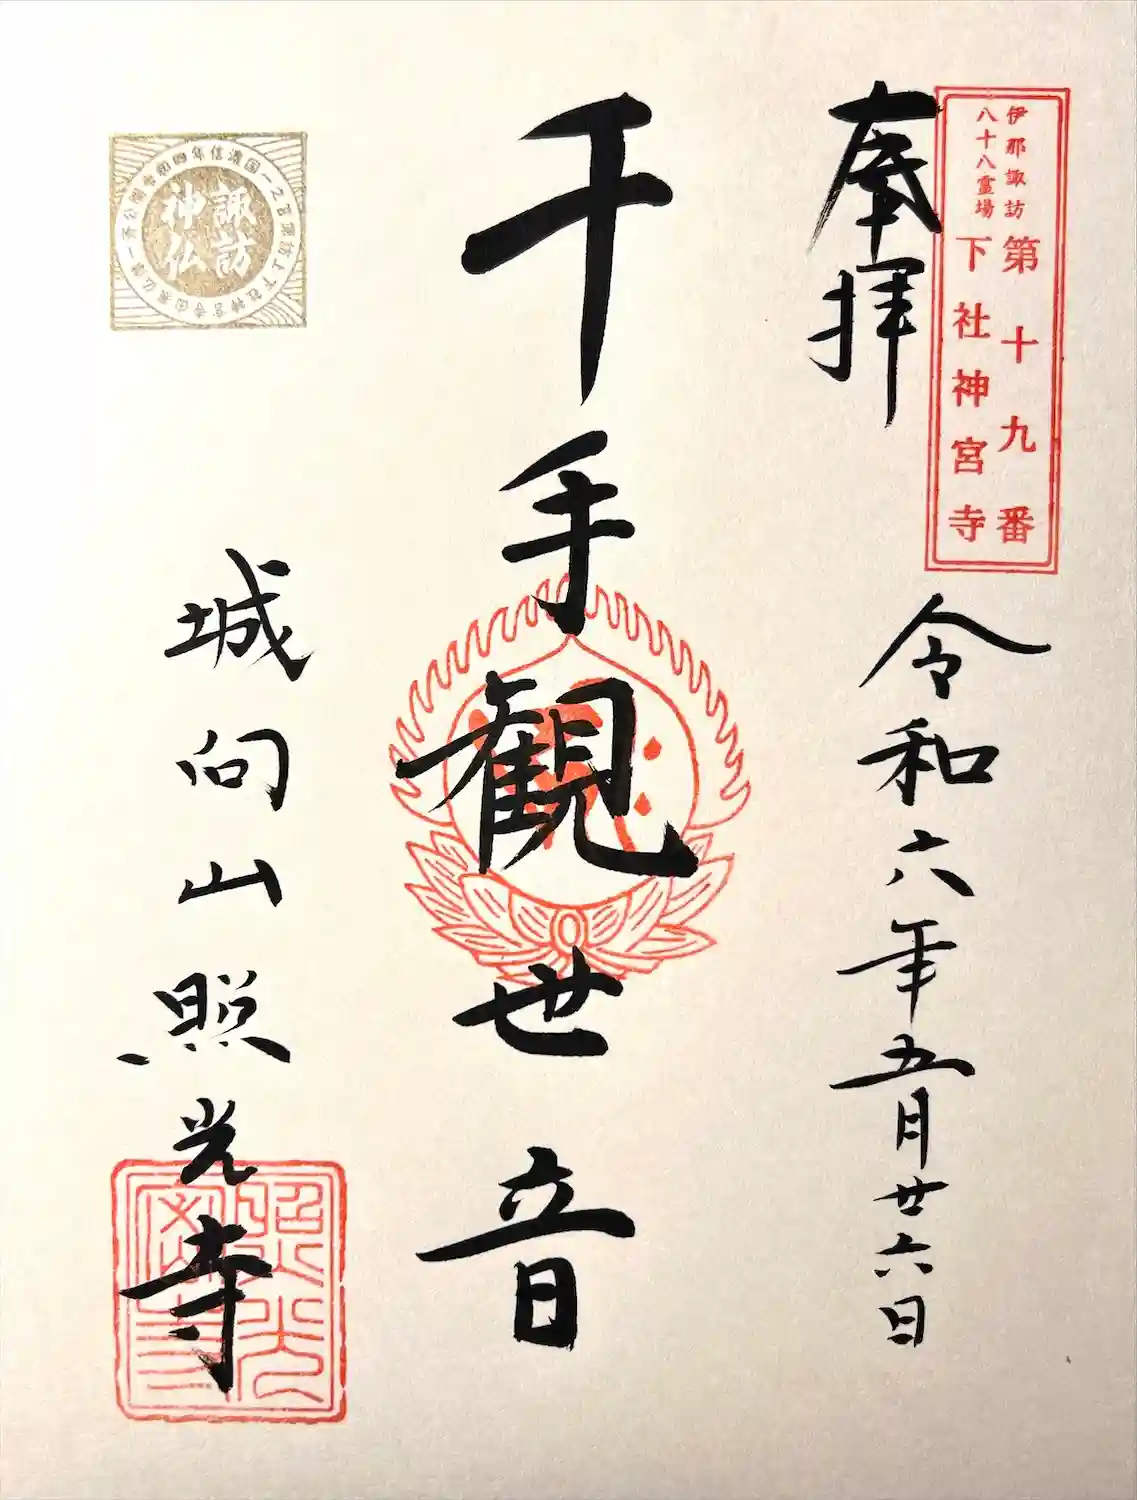 伊那諏訪
八十八霊場
第十九番
下社神宮寺
奉拝
令和六年五月廿六日
千手観世音
諏訪
神仏
城向山照光寺